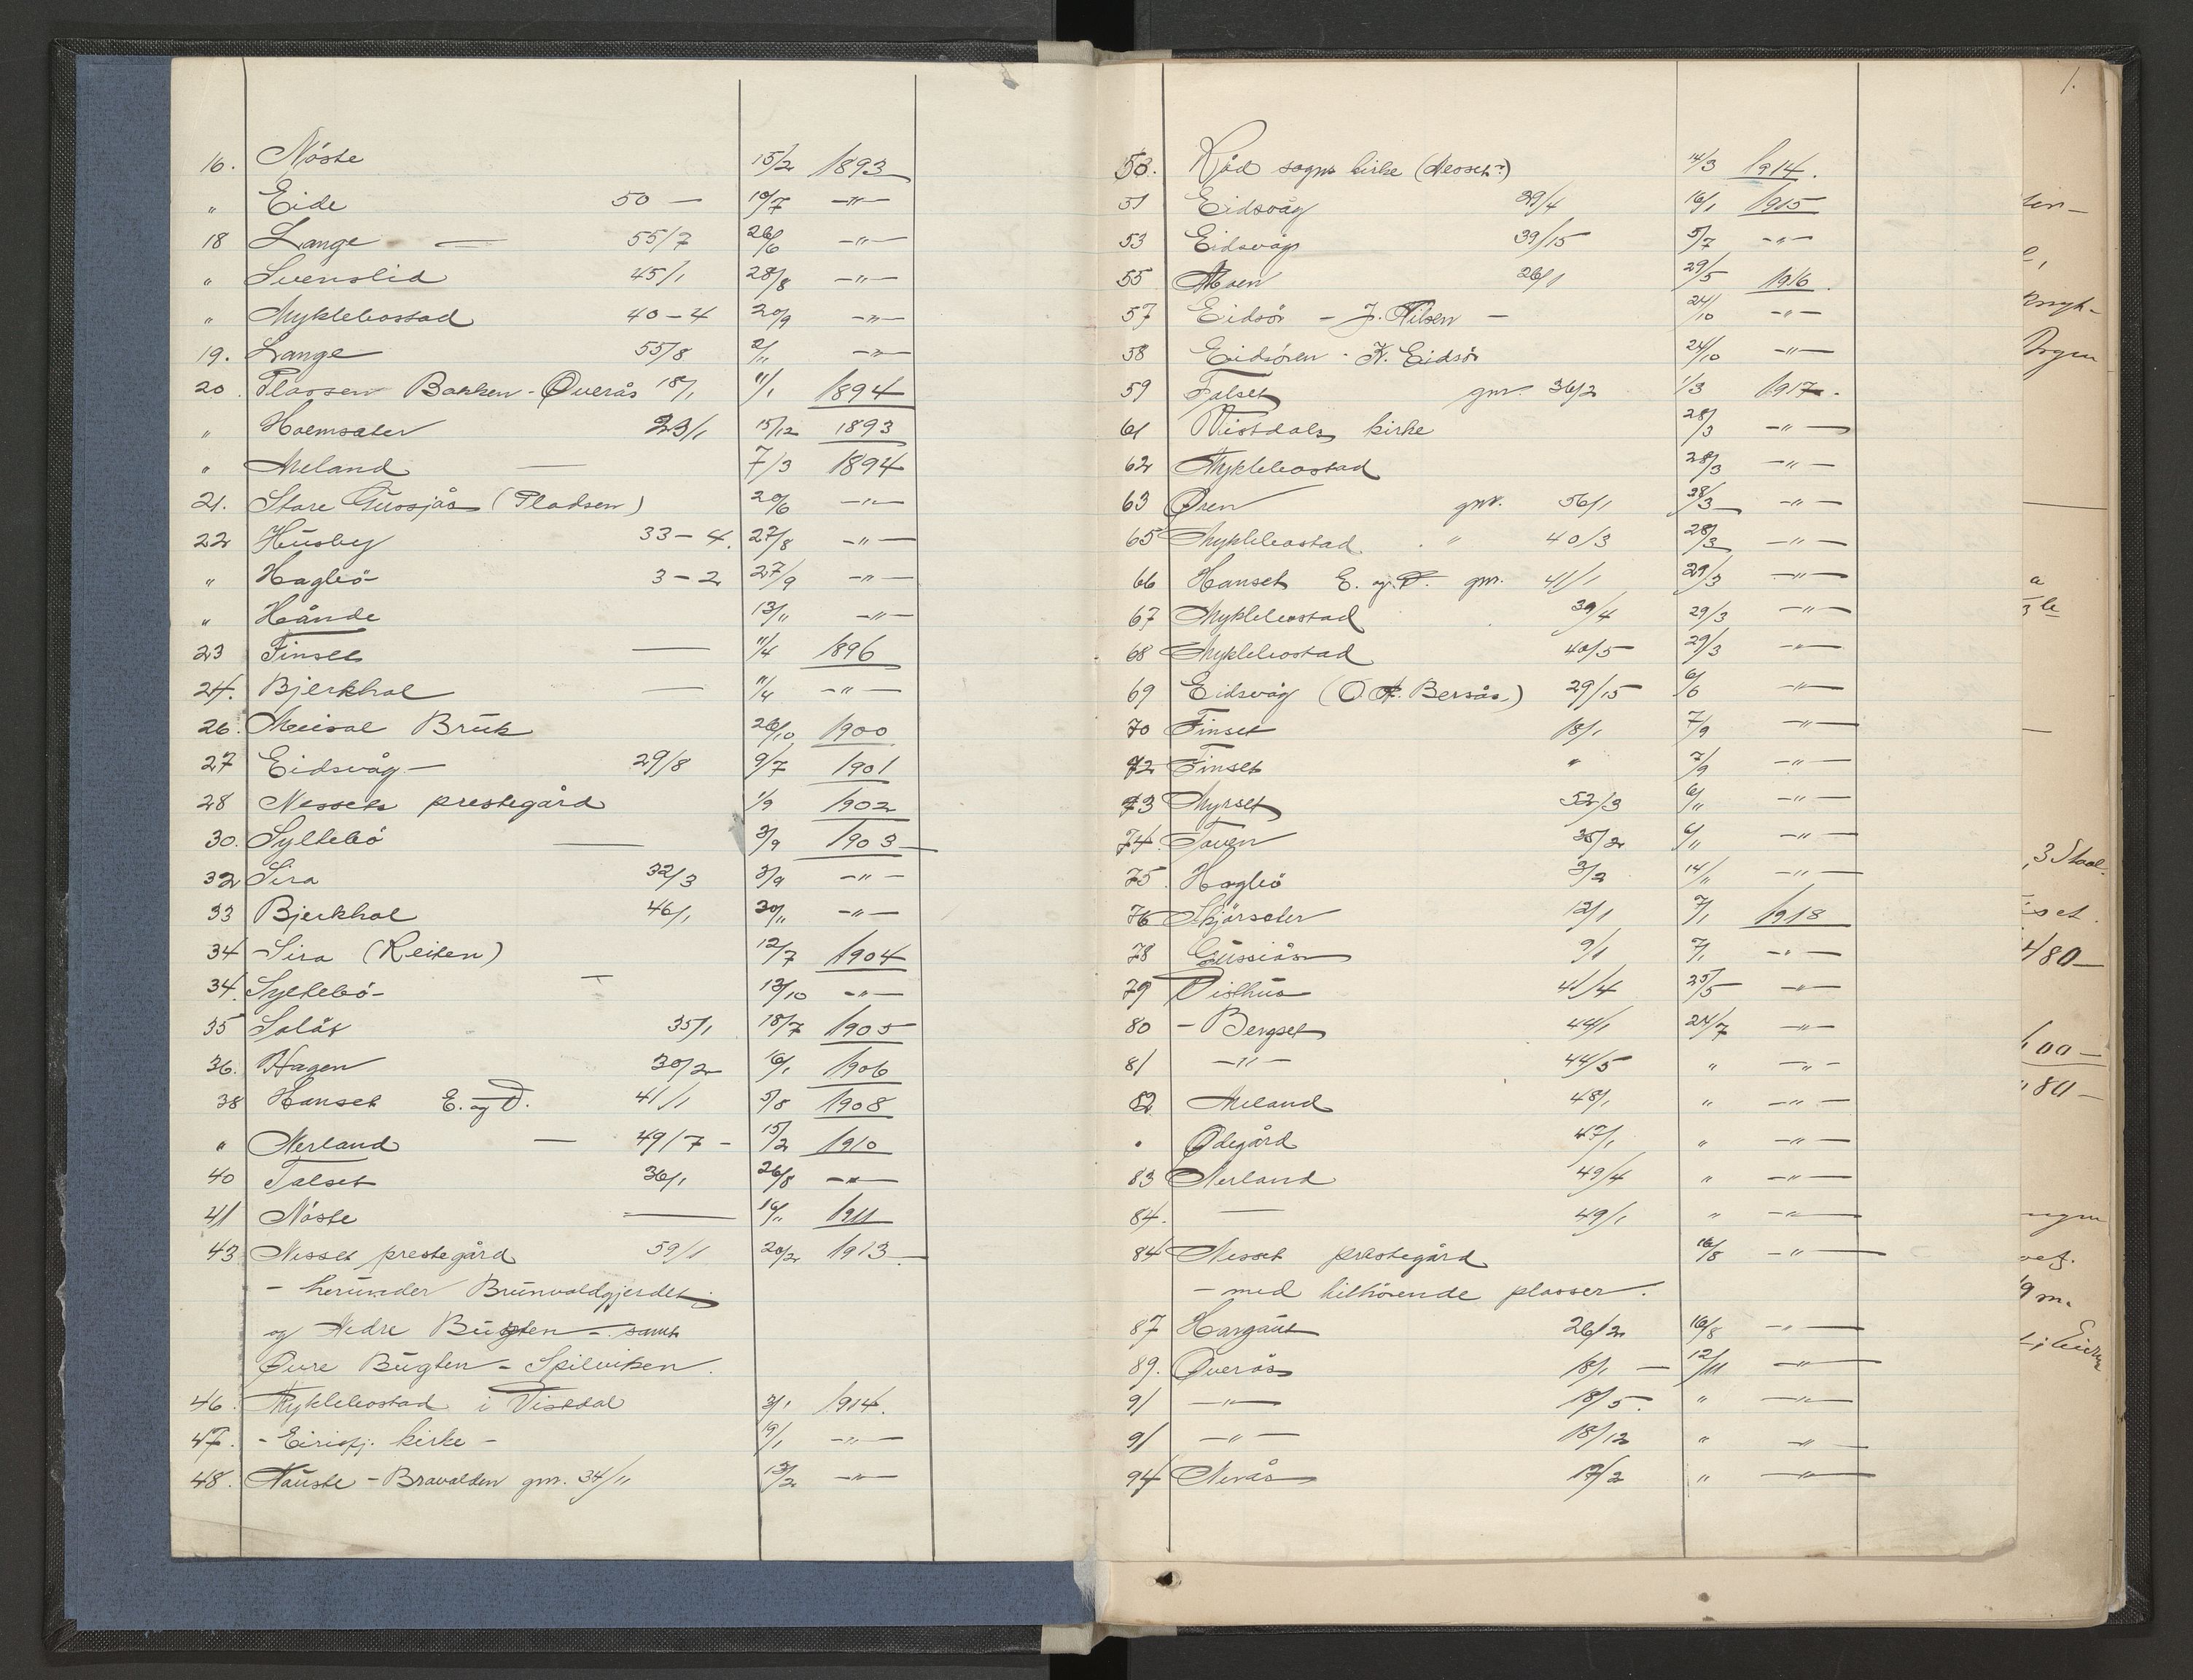 16. Nöste 15/2 1893
" Eide 50 — 10/7 —"—
18 Lange — 55/7 26/6 —"—
" Svenslid 45/1 28/8 —"—
" Myklebostad 40-4 20/9 —"—
19. Lange 55/8 2/11 —"—
20. Plassen Bakken - Øverås 18/1 11/1 1894
" Holmsæter 23/1 15/12 1893
" Meland — 7/3 1894
21. Store Gussjås (Pladsen) 20/6 —"—
22 Husby 33-4. 27/8 —"—
" Hagbö 3-2 27/9 —"—
" Hånde 13/11 —"—
23 Finset — 11/4 1896
24. Bjerkhol — 11/4 —"—
26. Meisal Bruk 26/10 1900
27 Eidsvåg — 29/8 9/7 1901
28 Nessets prestegård 1/9 1902
30. Syltebö — 3/9 1903
32 Sira 32/3 3/9 —"—
33 Bjerkhol 46/1 30/11 —"—
34 Sira (Reiten) 12/7 1904
34. Syltebö — 13/10 —"—
35 Solåt 35/1 18/7 1905
36. Hagen 30/2 16/1 1906
38 Hanset E. og D. 41/1 5/8 1908
" Nerland — 49/7 - 15/2 1910
40 Talset 36/1 26/8 —"—
41 Nöste — 16/11 1911
43 Nesset prestegård 59/1 20/2 1913
- herunder Brunvoldgjerdet
og Nedre Bugten - samt
Øvre Bugten - Spilviken.
46. Myklebostad i Vistdal 3/1 1914.
47. - Eirisfj. kirke - 19/1 —"—
48. Nauste - Bravolden gnr. 34/11 13/2 —"—
1.
50. Röd sogns kirke (Nesset?) 14/3 1914.
51 Eidsvåg 29/4 16/1 1915
53 Eidsvåg 39/15 5/7 —"—
55 Moen 26/1 29/5 1916.
57 Eidsör - J. Nilsen - 24/10 —"—
58 Eidsören - K. Eidsör 24/10 —"—
59 Talset gnr. 36/2 1/3 1917.
61 Vistdals kirke 28/3 —"—
62 Myklebostad 28/3 —"—
63 Øren gnr. 56/1 28/3 —"—
65 Myklebostad " 40/3 28/3 —"—
66 Hanset E. og D. gnr. 41/1 29/3 —"—
67 Myklebostad 39/4 29/3 —"—
68 Myklebostad 40/5 29/3 —"—
69 Eidsvåg (O. A. Bersås.) 29/15 6/6 —"—
70 Finset 18/1 7/9 —"—
72 Finset " 7/9 —"—
73 Myrset 52/3 6/11 —"—
74. Toven 35/2 6/11 —"—
75. Hagbö 3/2 14/11 —"—
76 Skjörsæter 12/1 7/1 1918
78 Gussiås 9/1 7/1 —"—
79 Visthus 41/4 25/5 —"—
80 - Bergset 44/1 24/7 —"—
81 —"— 44/5 " —"—
82 Meland 48/1 " —"—
" Ødegård 47/1 " —"—
83 Nerland 49/4 " —"—
84. — 49/1 " —"—
84 Nesset prestegård 16/8 —"—
- med tilhörende plasser.
87 Hargaut 26/2 16/8 —"—
89. Øverås 18/1 — 12/11 —"—
91 —"— 18/5. " —"—
91 —"— 18/12 " —"—
94 Nerås 17/2 " —"—